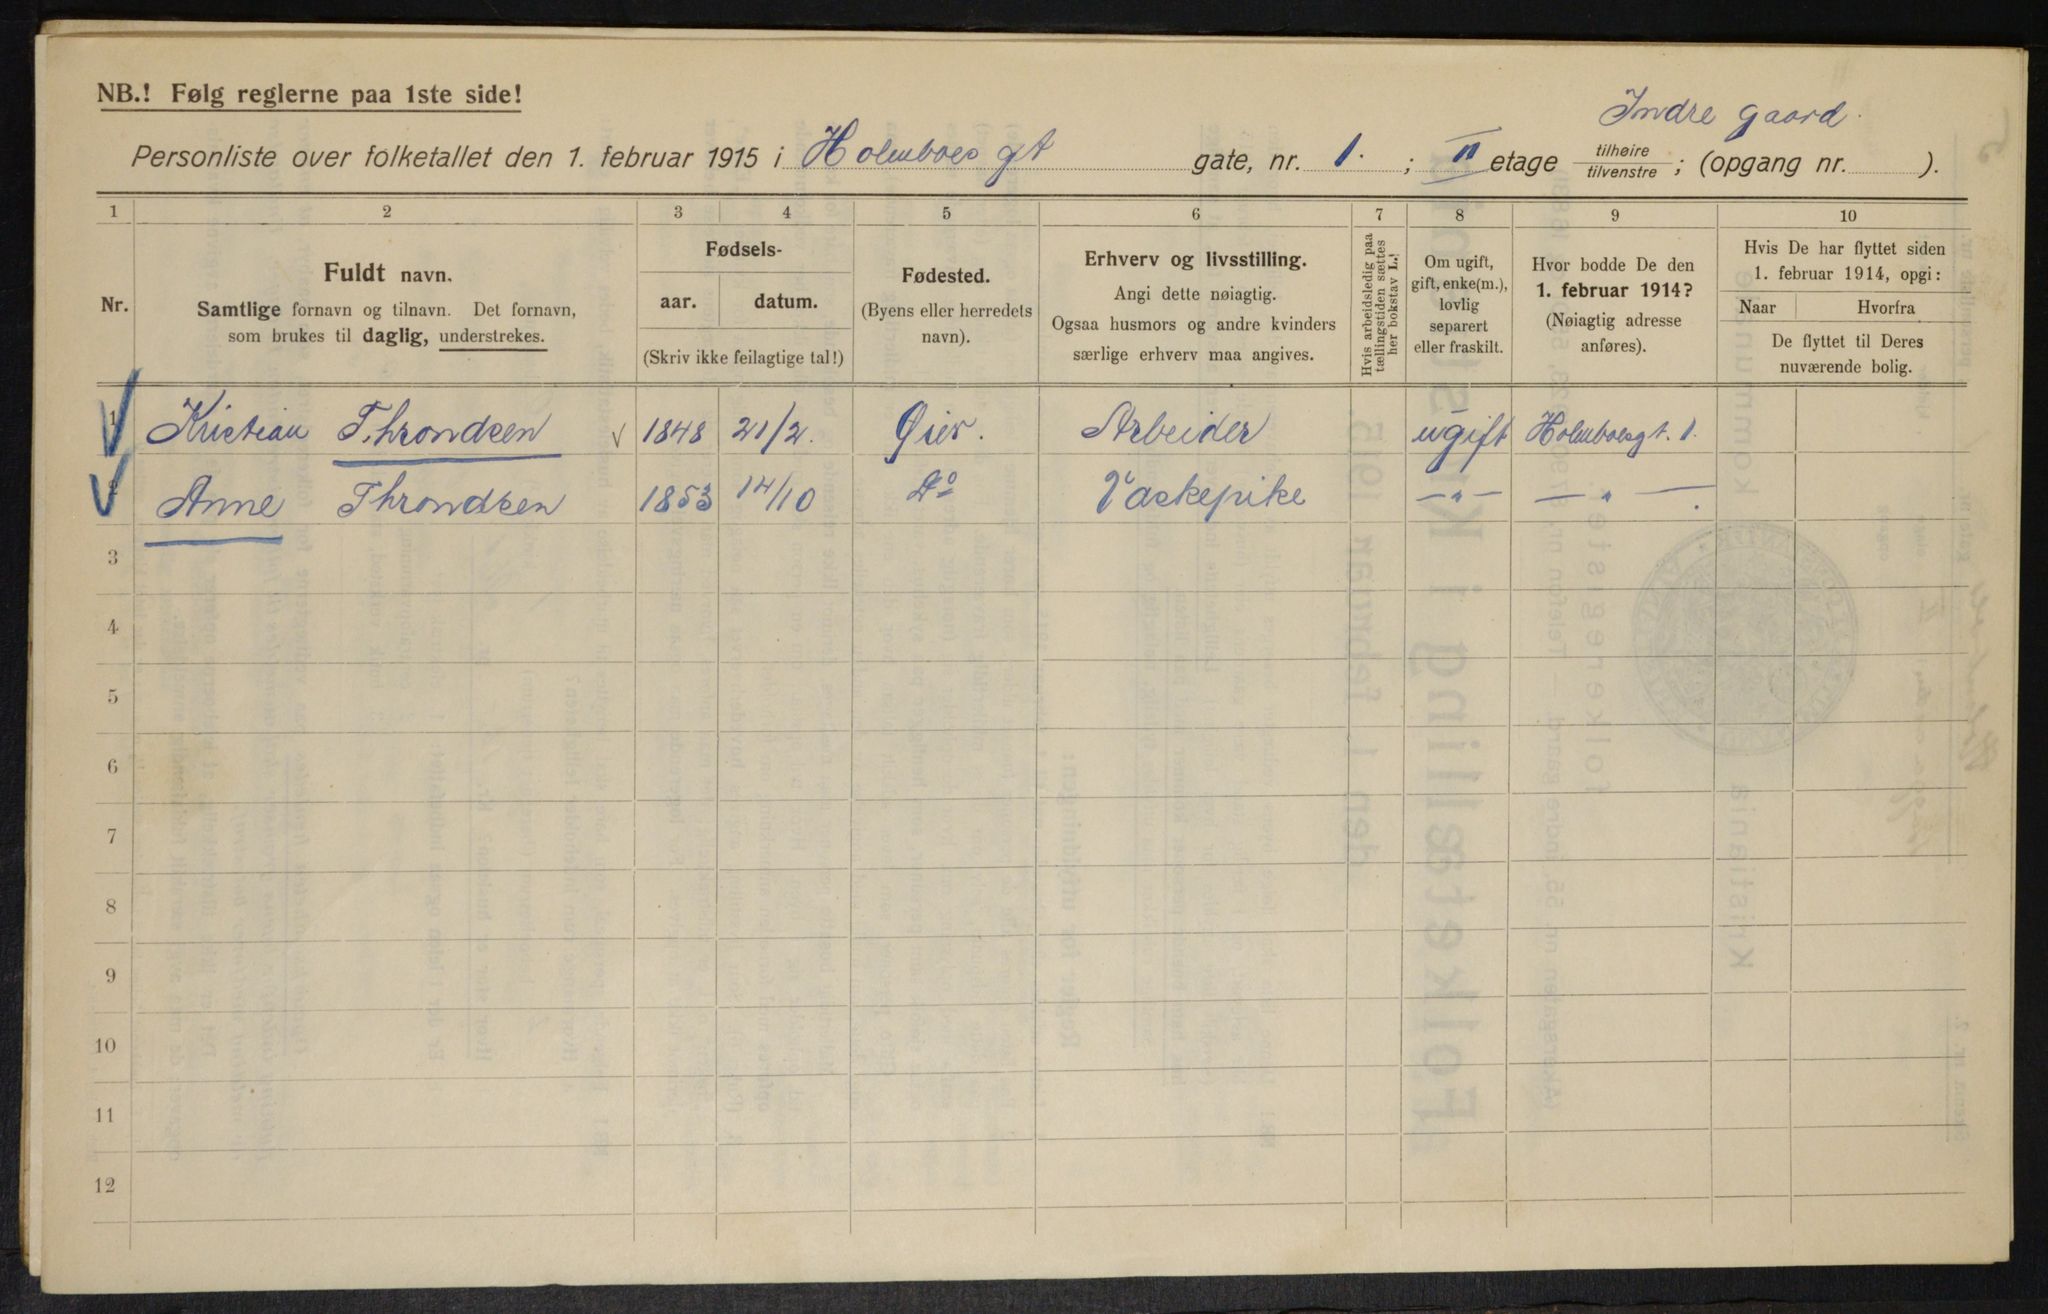 NB.! Følg reglerne paa 1ste side!
Indre gaard.
Personliste over folketallet den 1. februar 1915 i Holmboes gt gate, nr. 1. ; II etage tilhøire / tilvenstre ; (opgang nr. ).
1 2 3 4 5 6 7 8 9 10
Nr.
Fuldt navn.
Samtlige fornavn og tilnavn. Det fornavn,
som brukes til daglig, understrekes.
Fødsels-
aar. datum.
(Skriv ikke feilagtige tal!)
Fødested.
(Byens eller herredets
navn).
Erhverv og livsstilling.
Angi dette nøiagtig.
Ogsaa husmors og andre kvinders
særlige erhverv maa angives.
Hvis arbeidsledig paa
tællingstiden sættes
her bokstav L.!
Om ugift,
gift, enke(m.),
lovlig
separert
eller fraskilt.
Hvor bodde De den
1. februar 1914?
(Nøiagtig adresse
anføres).
Hvis De har flyttet siden
1. februar 1914, opgi:
Naar Hvorfra
De flyttet til Deres
nuværende bolig.
1 Kristian Throndsen 1848 21/2. Øier. Arbeider ugift Holmboesgt. 1.
2 Anne Throndsen 1853 14/10 Do Vaskepike — " — — " —.
3
4
5
6
7
8
9
10
11
12